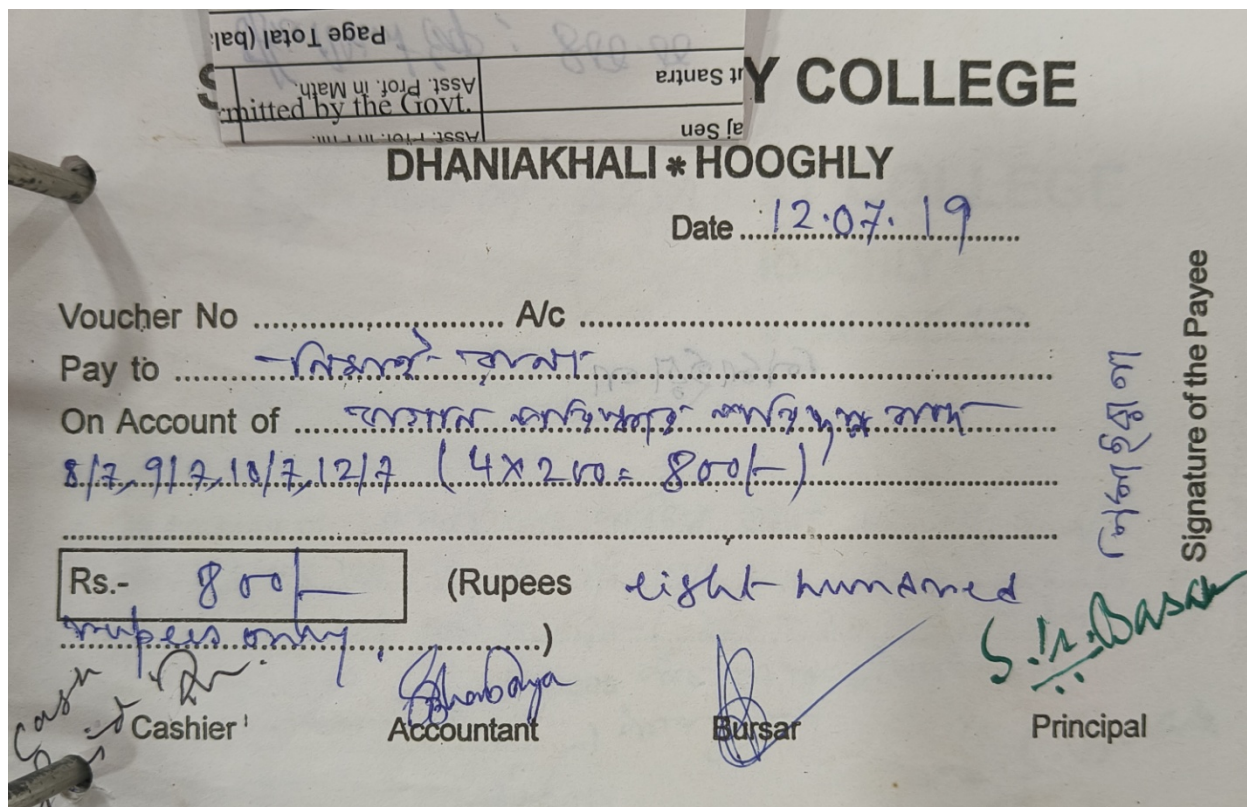 Page Total (bal
Asst. Prof. in Math.
ut Santra
mitted by the Govt.
aj Sen
S Y COLLEGE
DHANIAKHALI * HOOGHLY
Date 12.07.19
Voucher No A/c
Pay to
On Account of বাগান পরিষ্কার
8/7, 9/7, 10/7, 12/7 (4 x 200 = 800/-)
Rs.- 800/- (Rupees eight hundred
rupees only.)
Cash
Cashier Accountant Bursar Principal
S. K. Basak
Signature of the Payee